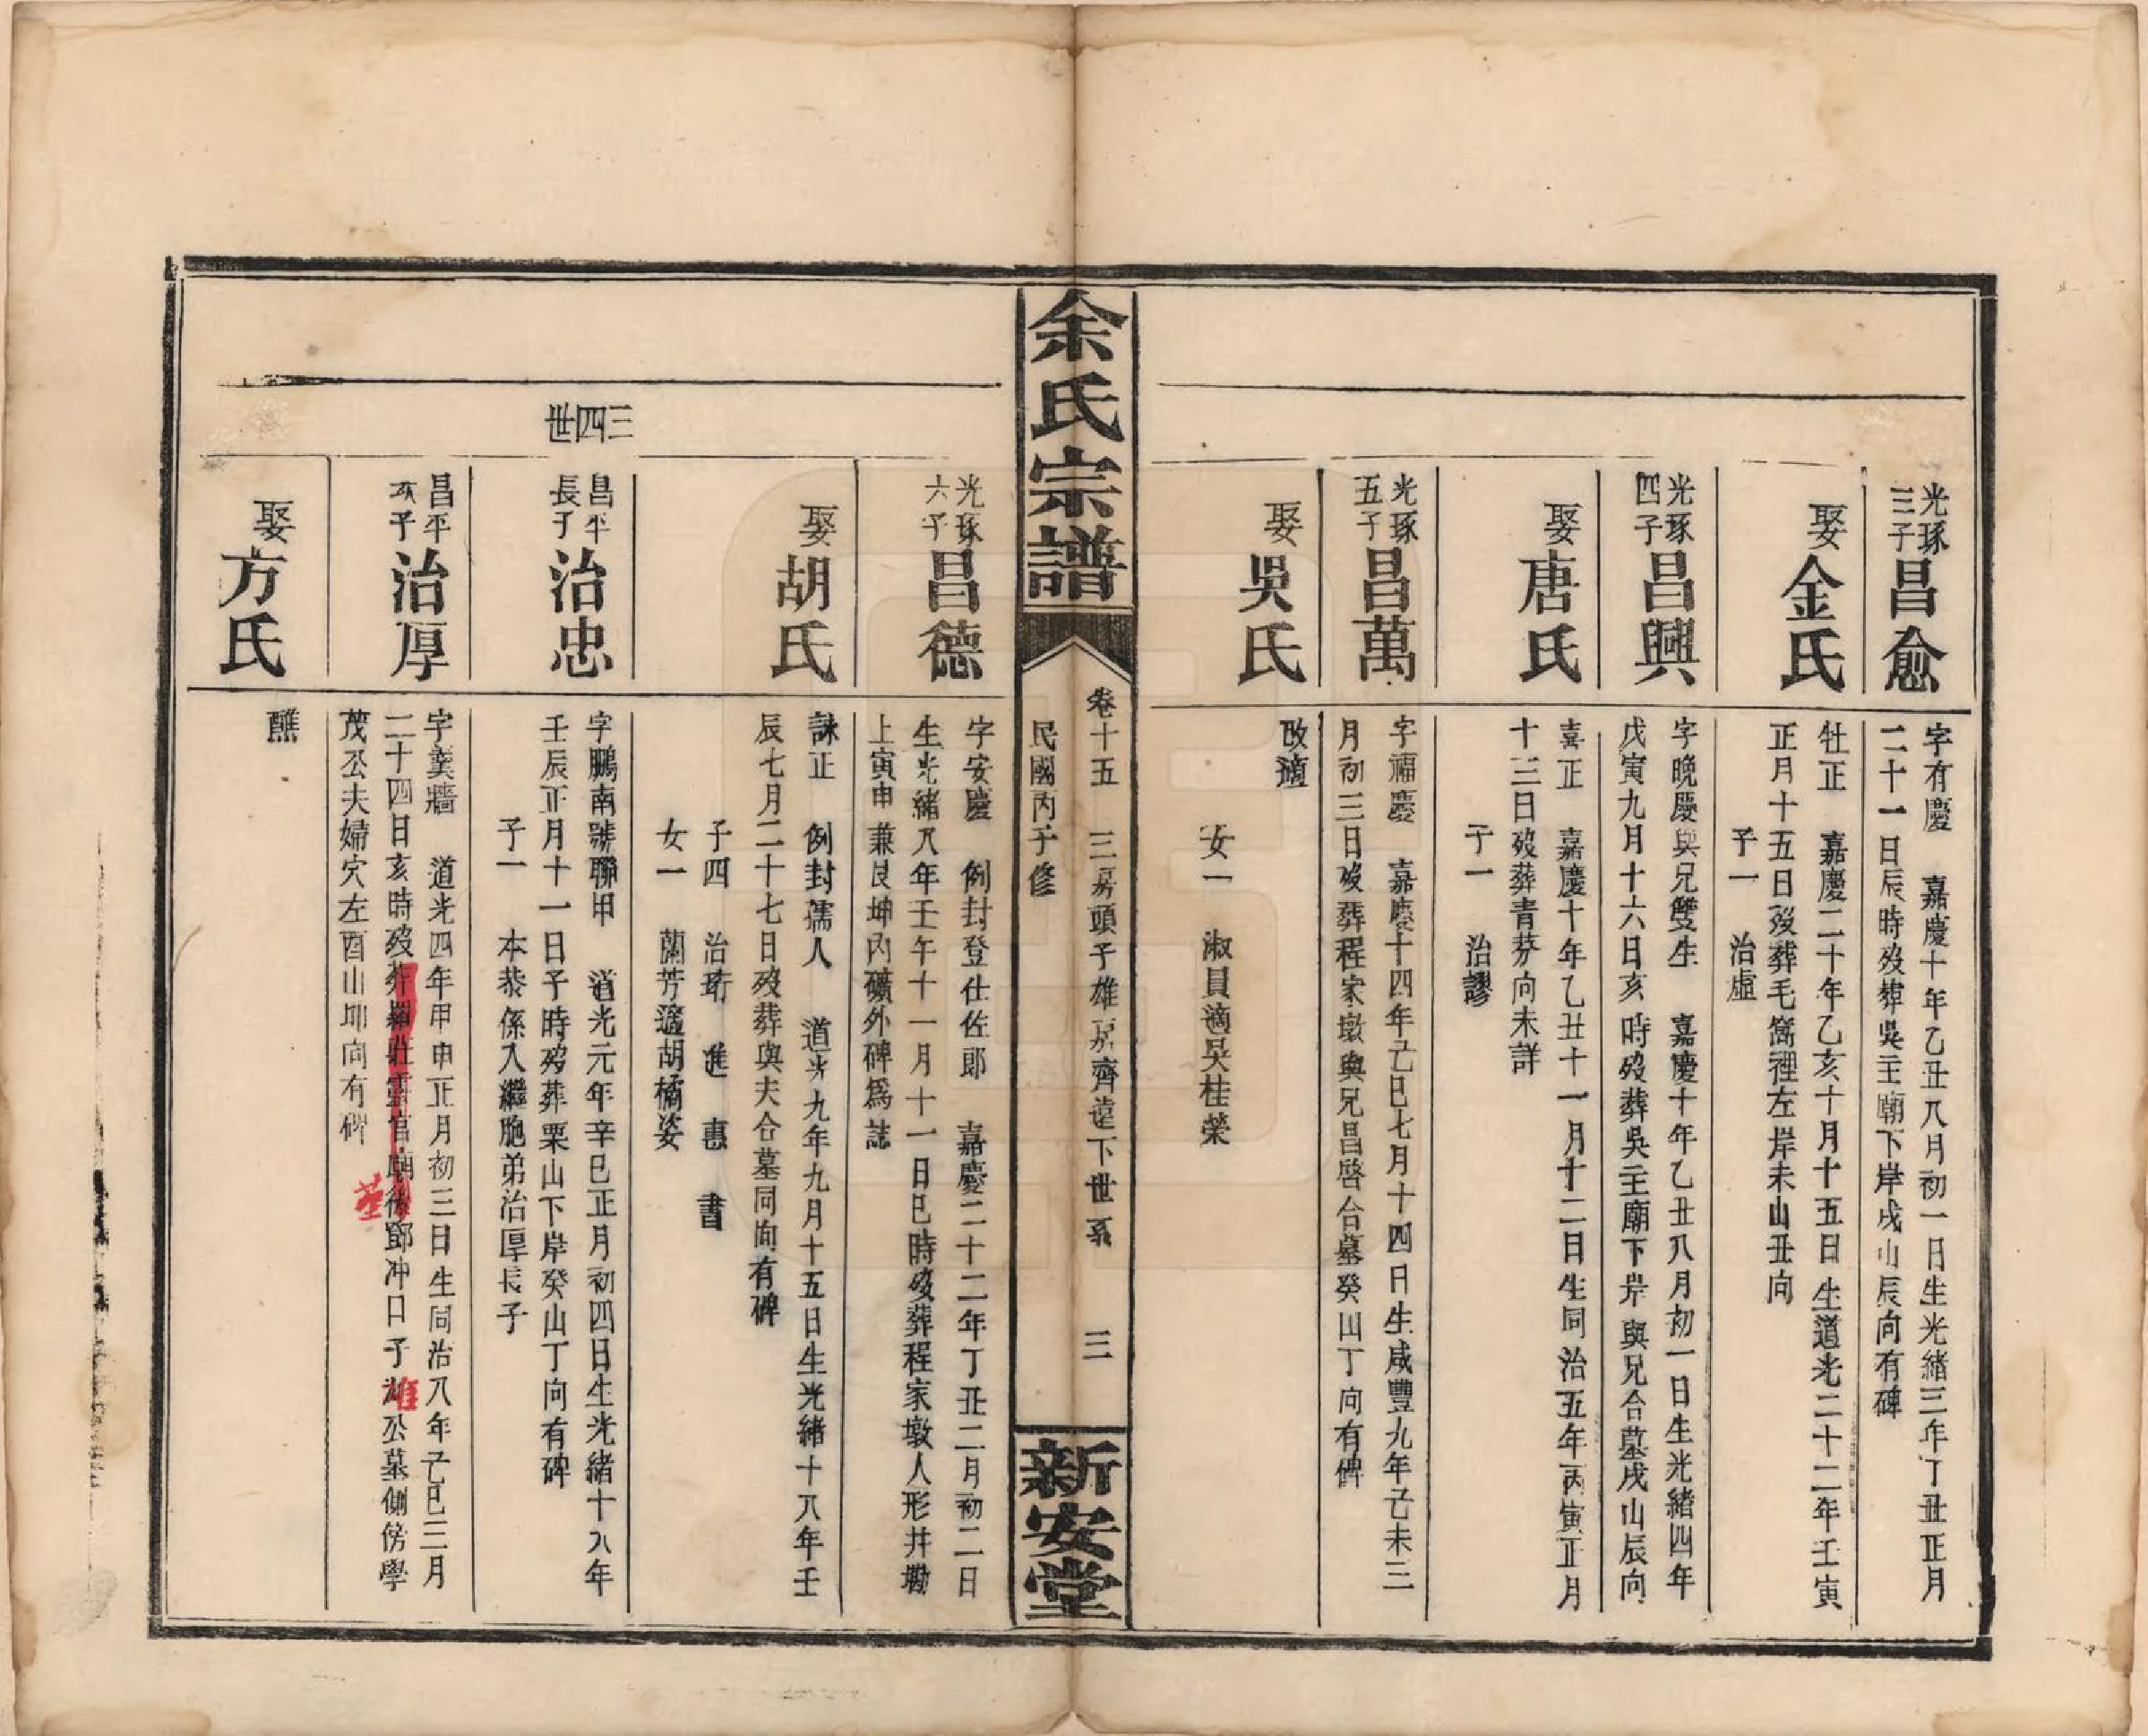 光琢
三子
昌愈
字有慶　嘉慶十年乙丑八月初一日生光緒三年丁丑正月
二十一日辰時歿葬吳主廟下岸戌山辰向有碑
娶
金氏
牡正　嘉慶二十年乙亥十月十五日生道光二十二年壬寅
正月十五日歿葬毛窩裡左岸未山丑向
子一　治虛
光琢
四子
昌興
字晚慶與兄雙生　嘉慶十年乙丑八月初一日生光緒四年
戊寅九月十六日亥時歿葬吳主廟下岸與兄合墓戌山辰向
娶
唐氏
喜正　嘉慶十年乙丑十一月十二日生同治五年丙寅正月
十三日歿葬青茅向未詳
子一　治謬
光琢
五子
昌萬
字福慶　嘉慶十四年己巳七月十四日生咸豐九年己未三
月初三日歿葬程家墩與兄昌啓合墓癸山丁向有碑
娶
吳氏
改適
女一　淑員適吳桂榮
余氏宗譜
卷十五　三房頭子雄房齊遠下世系　三
民國丙子修
新安堂
光琢
六子
昌德
字安慶　例封登仕佐郎　嘉慶二十二年丁丑二月初二日
生光緒八年壬午十一月十一日巳時歿葬程家墩人形井墈
上寅申兼艮坤內礦外碑爲誌
娶
胡氏
詠正　例封孺人　道光九年九月十五日生光緒十八年壬
辰七月二十七日歿葬與夫合墓同向有碑
子四　治琦　進　惠　書
女一　蘭芳適胡橘姿
三四世
昌平
長子
治忠
字鵬南號聯甲　道光元年辛巳正月初四日生光緒十八年
壬辰正月十一日子時歿葬栗山下岸癸山丁向有碑
子一　本恭係入繼胞弟治厚長子
昌平
次子
治厚
字羹牆　道光四年甲申正月初三日生同治八年己巳三月
二十四日亥時歿葬羅莊靈官廟後鄧冲口子雄公墓側傍學
茂公夫婦穴左酉山卯向有碑
娶
方氏
醮